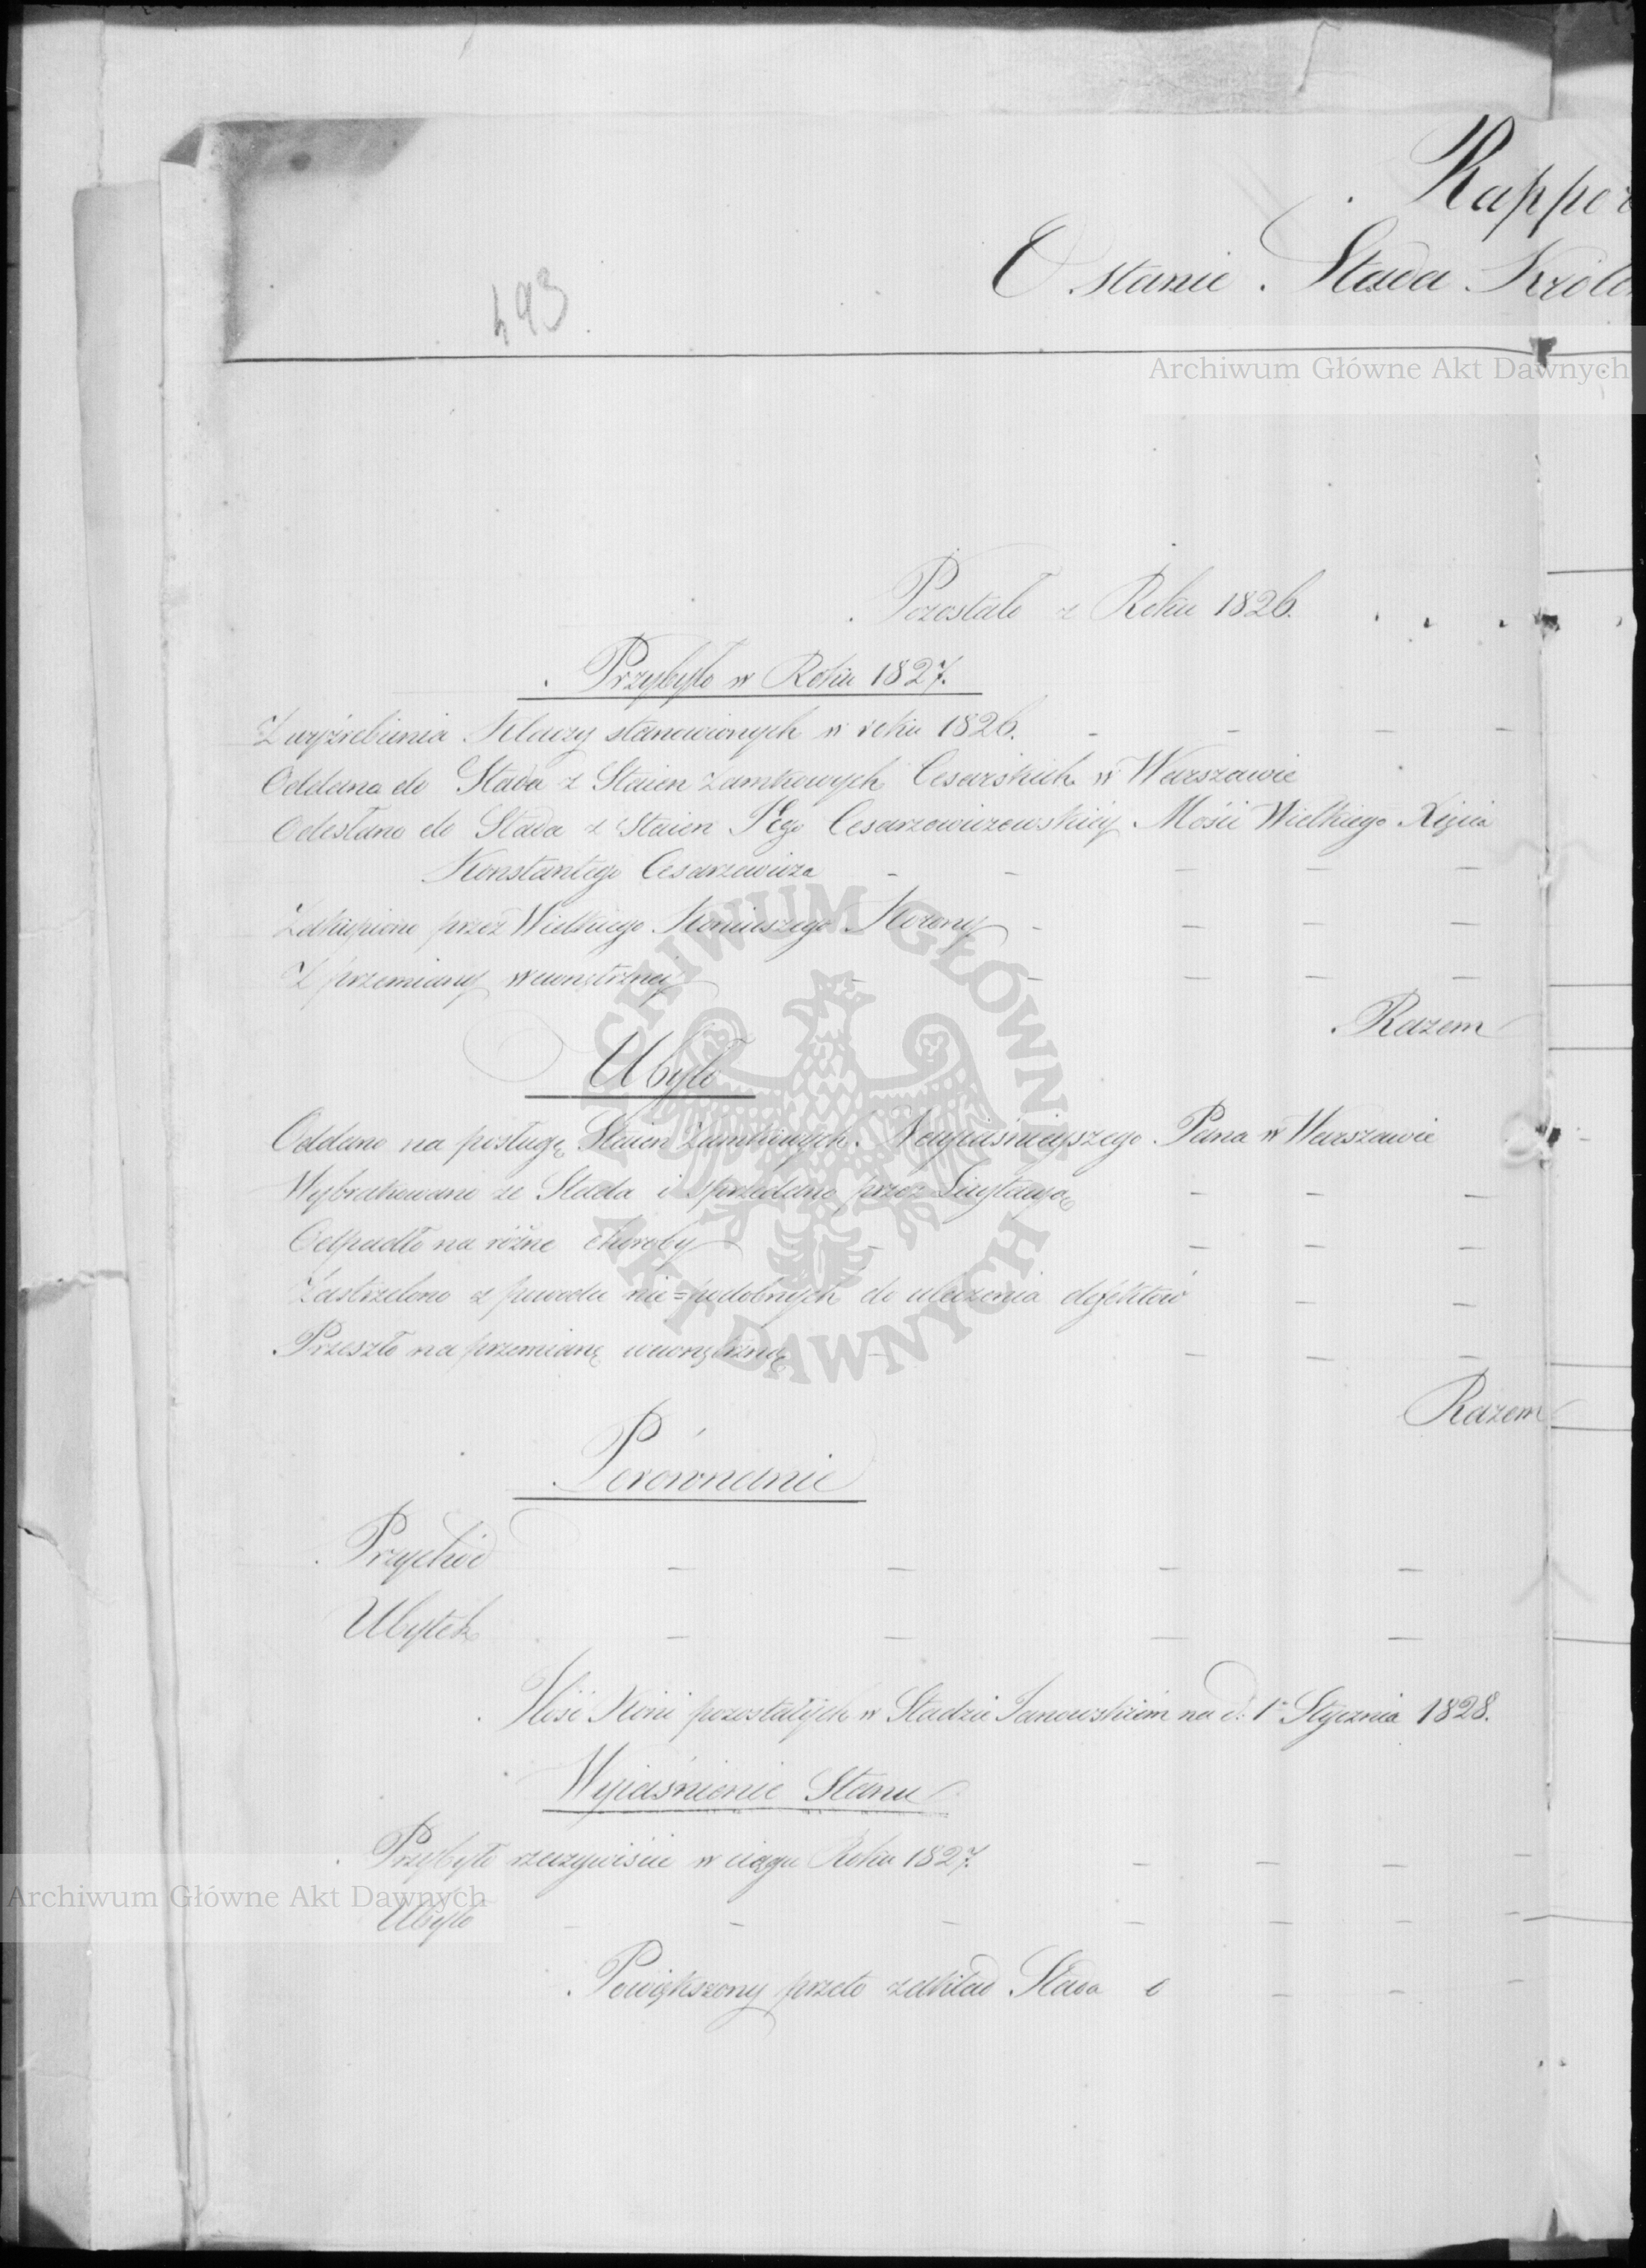 Rappor
O stanie Stada Królew
493
Pozostało z Roku 1826.
Przybyło w Roku 1827.
Z wyźrebienia Klaczy stanowionych w roku 1826.
Oddano do Stada z Staien Zamkowych Cesarskich w Warszawie
Odesłano do Stada z Staien Jego Cesarzewiczowskiéy Mości Wielkiego Xięcia
Konstantego Cesarzewicza
Zakupiono przez Wielkiego Koniuszego Korony
Z przemiany wewnętrznéj
Razem
Ubyło
Oddano na posługę Staien Zamkowych Nayiaśnieyszego Pana w Warszawie
Wybrakowano ze Stada i sprzedano przez Licytacyą
Odpadło na różne choroby
Zastrzelono z powodu nie=podobnych do uleczenia defektów
Przeszło na przemianę wewnętrzną
Razem
Porównanie
Przychód
Ubytek
Ilość Koni pozostałych w Stadzie Janowskiém na d. 1º Stycznia 1828.
Wyiaśnienie Stanu
Przybyło rzeczywiście w ciągu Roku 1827.
Ubyło
Powiększony przeto zakład Stada o
Archiwum Główne Akt Dawnych
ARCHIWUM GŁÓWNE AKT DAWNYCH
Archiwum Główne Akt Dawnych